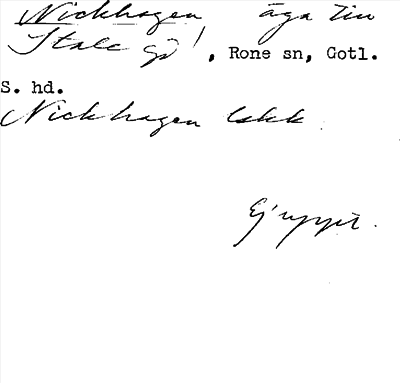 Nickhagen äga till
Stale gd, Rone sn, Gotl.
S. hd.
Nickhagen lskk
Ej uppt.